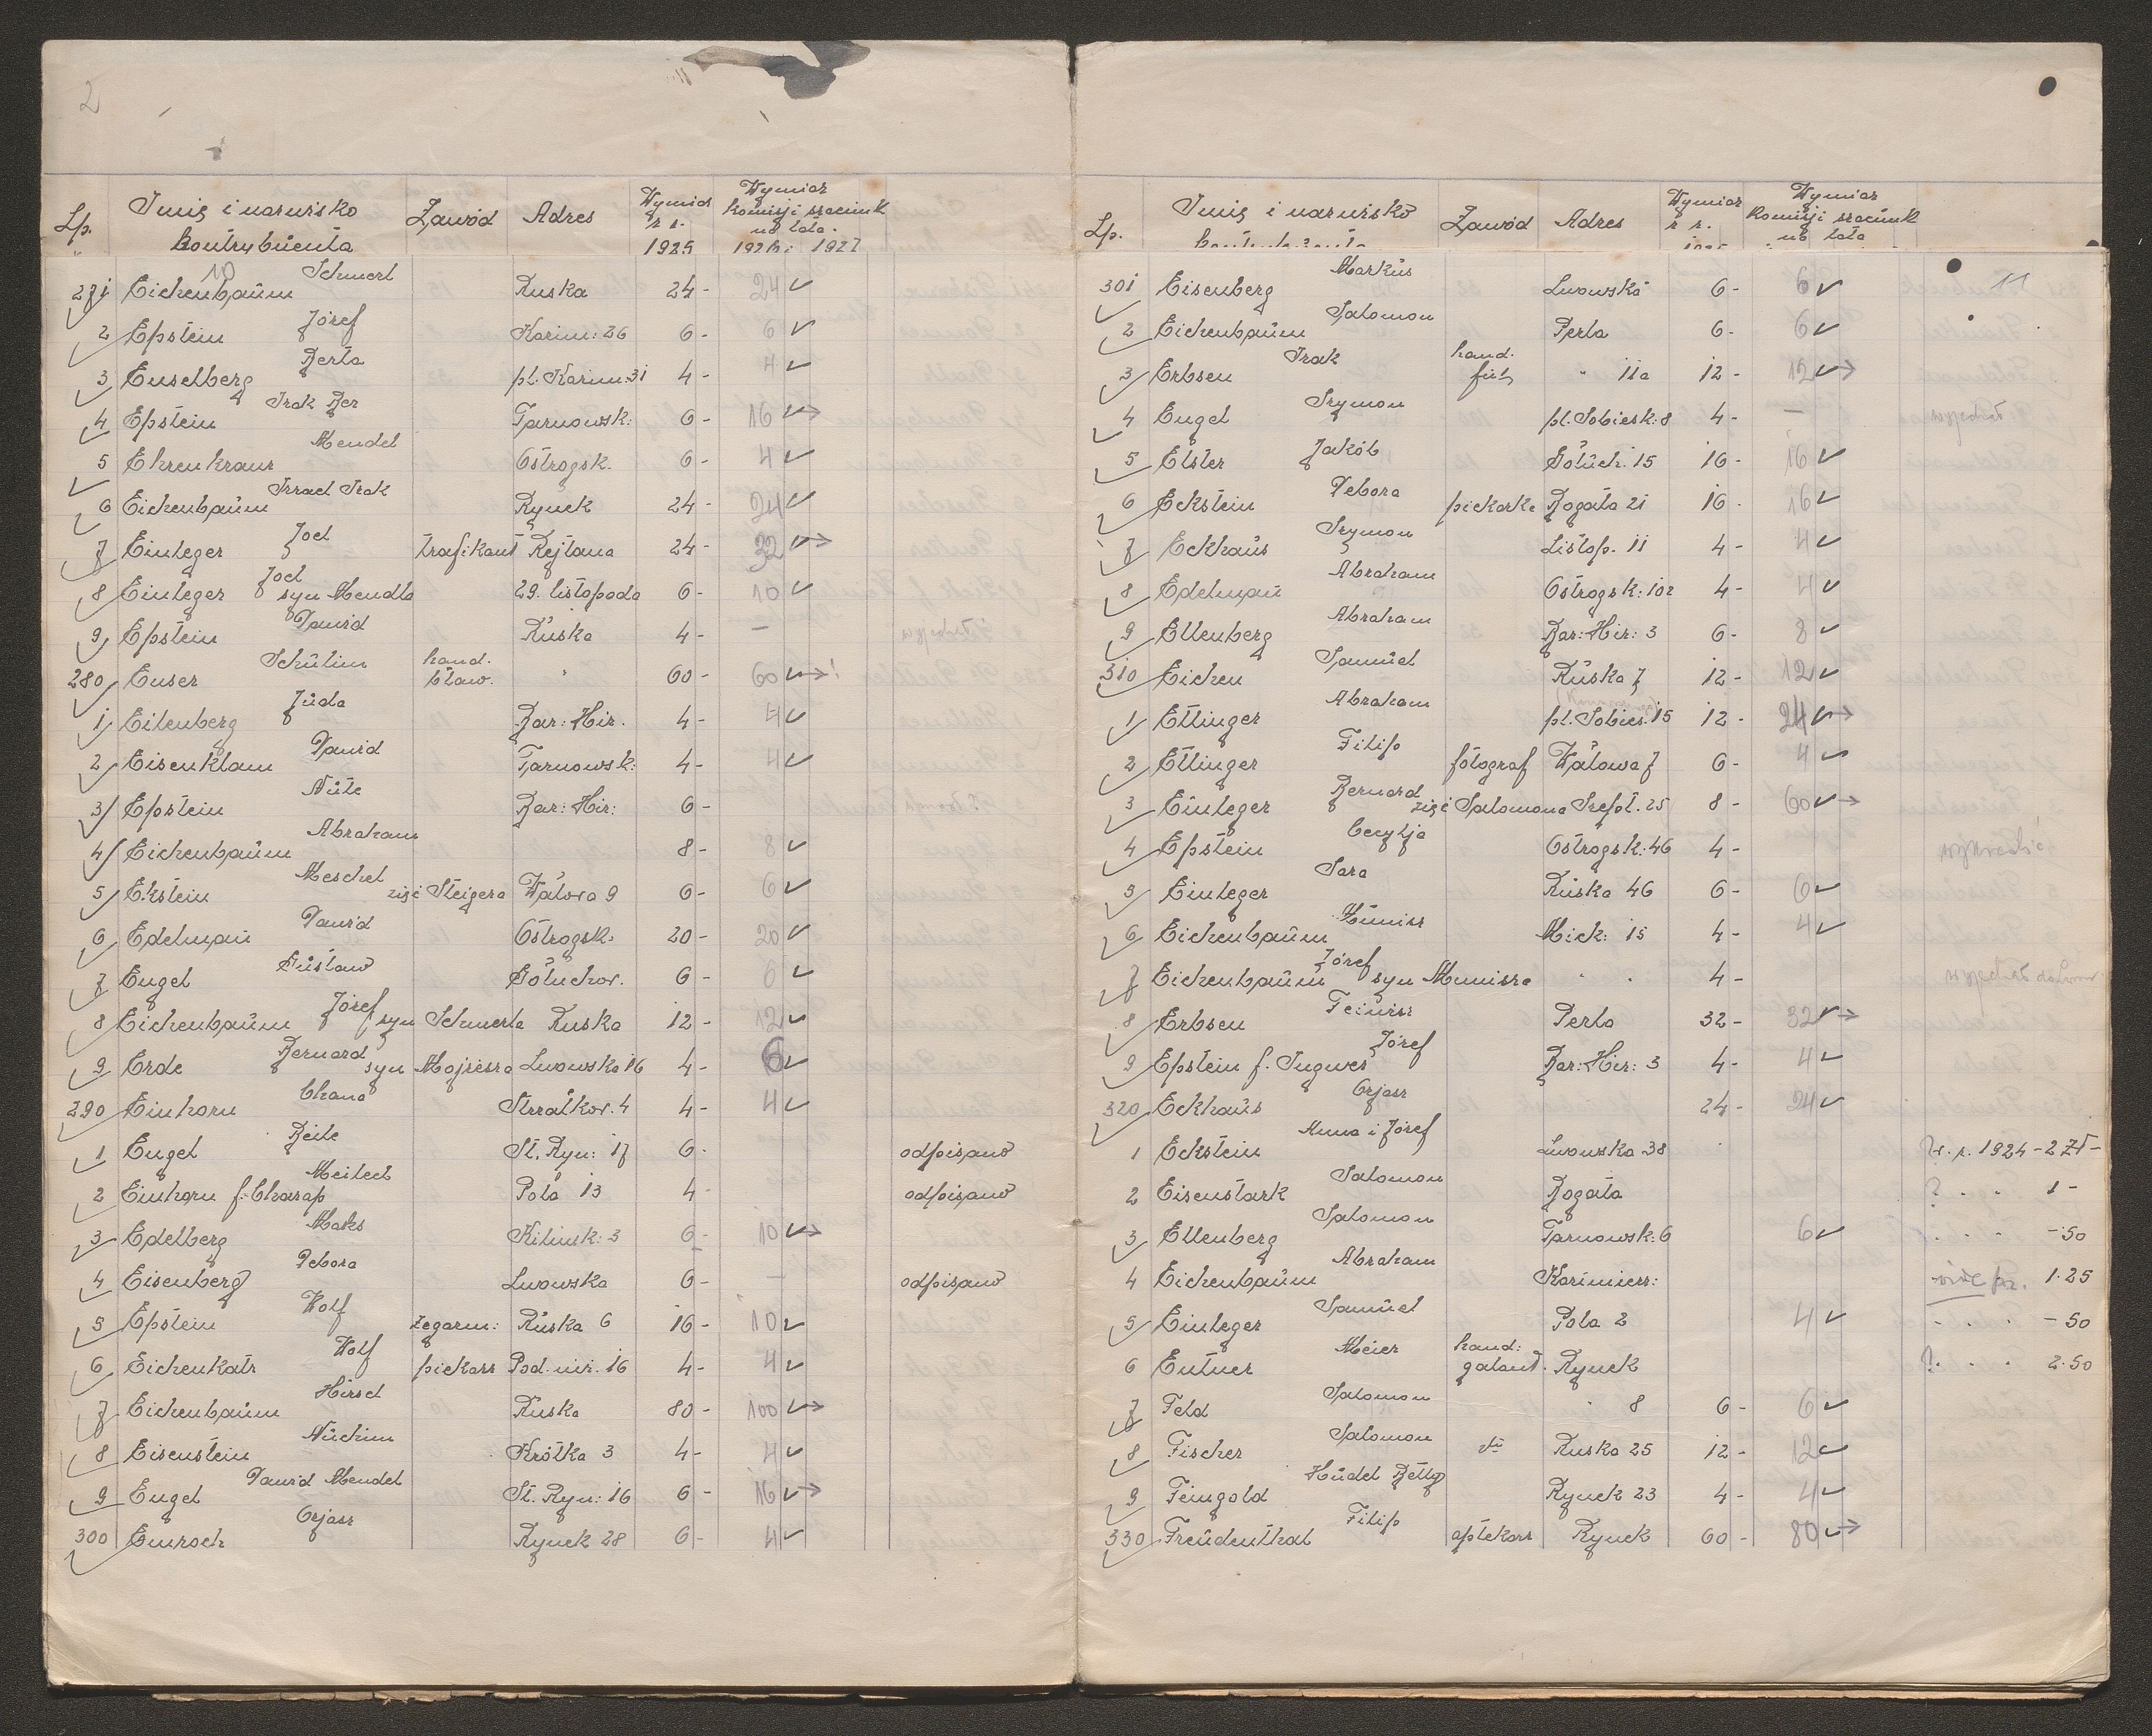 2
Lp. Imię i nazwisko kontrybuenta Zawód Adres Wymiar z r. 1925 Wymiar komisji szacunk na lata 1926 i 1927
10
271 Eichenbaum Schmerl Ruska 24- 24
2 Epstein Józef Kazim: 26 6- 6
3 Enselberg Berta pl. Kazim: 31 4- 4
4 Epstein Izak Ber Tarnowsk: 6- 16
5 Ehrenkranz Mendel Ostrogsk. 6- 4
6 Eichenbaum Izrael Izak Rynek 24- 24
7 Einleger Joel trafikant Rejtana 24- 32
8 Einleger Joel syn Mendla 29. listopada 6- 10
9 Epstein Dawid Ruska 4- —
280 Enser Schulim hand. bław. " 60- 60 !
1 Eilenberg Juda Bar: Hir. 4- 4
2 Eisenklam Dawid Tarnowsk: 4- 4
3 Epstein Nute Bar: Hir: 6-
4 Eichenbaum Abraham 8- 8
5 Ekstein Meschel zięć Steigera Wałowa 9 6- 6
6 Edelman Dawid Ostrogsk: 20- 20
7 Engel Gustaw Gołuchow. 6- 6
8 Eichenbaum Józef syn Schmerla Ruska 12- 12
9 Erde Bernard syn Mojżesza Lwowska 16 4- 6
290 Einhorn Chana Strzałkow. 4 4- 4
1 Engel Beile St. Ryn: 17 6- odpisano
2 Einhorn f. Charap Meilech Pola 13 4- odpisano
3 Edelberg Maks Kilinsk: 3 6- 10
4 Eisenberg Debora Lwowska 6- — odpisano
5 Epstein Wolf zegarm: Ruska 6 16- 10
6 Eichenkatz Wolf piekarz Pod. niż. 16 4- 4
7 Eichenbaum Hirsch Ruska 80- 100
8 Eisenstein Nuchim Krótka 3 4- 4
9 Engel Dawid Mendel St. Ryn: 16 6- 16
300 Emroch Ozjasz Rynek 28 6- 4
11
Lp. Imię i nazwisko Zawód Adres Wymiar z r. Wymiar komisji szacunk na lata
301 Eisenberg Markus Lwowska 6- 6
2 Eichenbaum Salomon Perla 6- 6
3 Erbsen Izak hand. " 11a 12- 12
4 Engel Szymon pl. Sobiesk: 8 4- — wyjechał
5 Elster Jakób Gołuch. 15 16- 16
6 Eckstein Debora piekarka Bogata 21 16- 16
7 Eckhaus Szymon Listop. 11 4- 4
8 Edelman Abraham Ostrogsk: 102 4- 4
9 Ellenberg Abraham Bar: Hir: 3 6- 8
310 Eichen Samuel Ruska 7 12- 12
1 Ettinger Abraham pl. Sobies. 15 12- 24
2 Ettinger Filip fotograf Wałowa 7 6- 4
3 Einleger Bernard zięć Salomona Szept. 25 8- 60
4 Epstein Cecylja Ostrogsk: 46 4-
5 Einleger Sara Ruska 46 6- 6
6 Eichenbaum Munisz Mick: 15 4- 4
7 Eichenbaum Józef syn Munisza " " 4- wyjechał do Lwow
8 Erbsen Feiwisz Perla 32- 32
9 Epstein f. Ingwer Józef Bar: Hir: 3 4- 4
320 Eckhaus Ozjasz 24- 24
1 Eckstein Anna i Józef Lwowska 38 ?z. r. 1924 - 2 Zł -
2 Eisenstark Salomon Bogata ? " " 1 -
3 Ellenberg Salomon Tarnowsk: 6 6 " " " - 50
4 Eichenbaum Abraham Kazimierz: vide 1.25
5 Einleger Samuel Pola 2 4 " " " - 50
6 Entner Meier hand: galant. Rynek ? " " 2.50
7 Feld Salomon " 8 6- 6
8 Fischer Salomon dto Ruska 25 12- 12
9 Feingold Hudel Bettg Rynek 23 4- 4
330 Freudenthal Filip aptekarz Rynek 60- 80